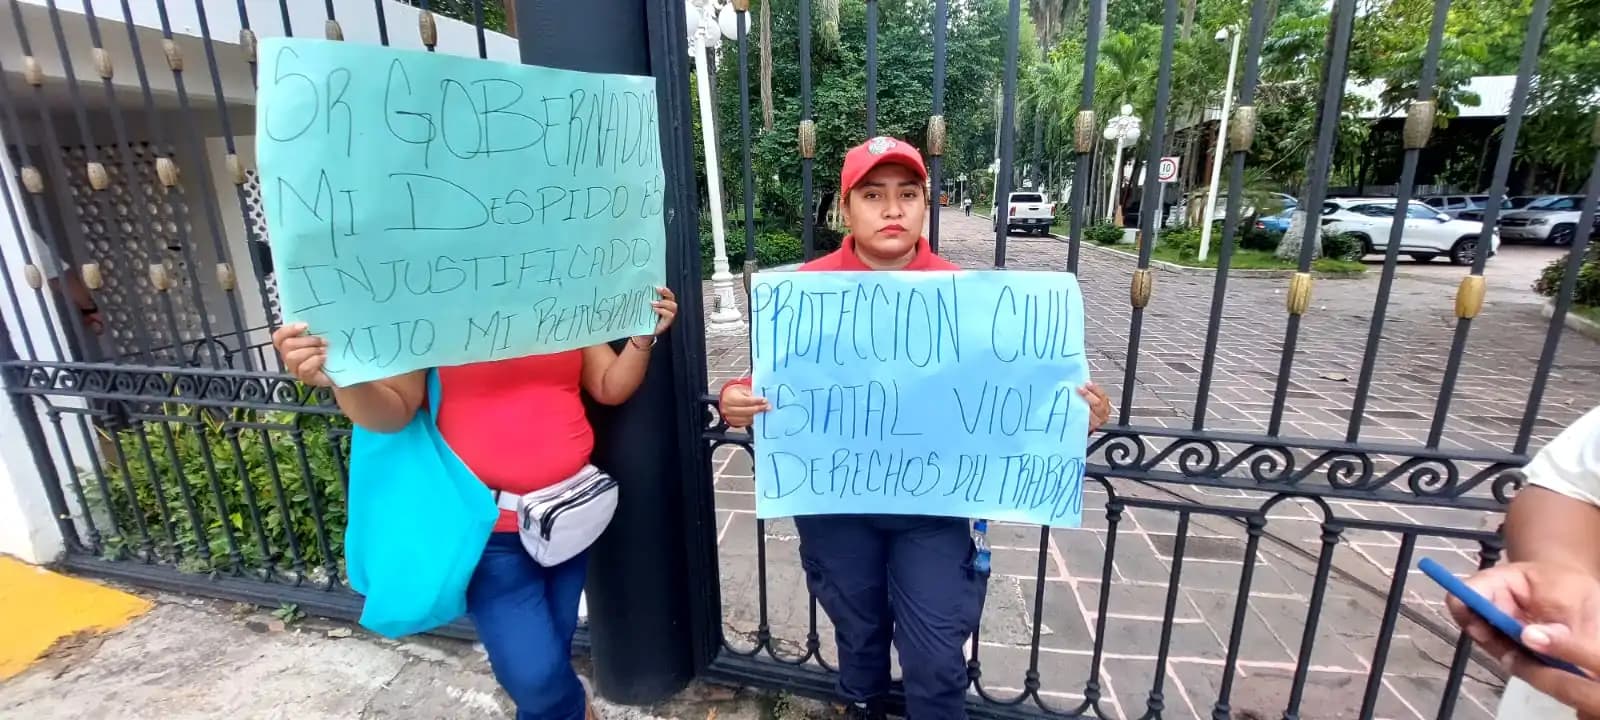 SR. GOBERNADOR
MI DESPIDO ES
INJUSTIFICADO
EXIJO MI REINSTALACION
PROTECCION CIVIL
ESTATAL VIOLA
DERECHOS DEL TRABAJO
10